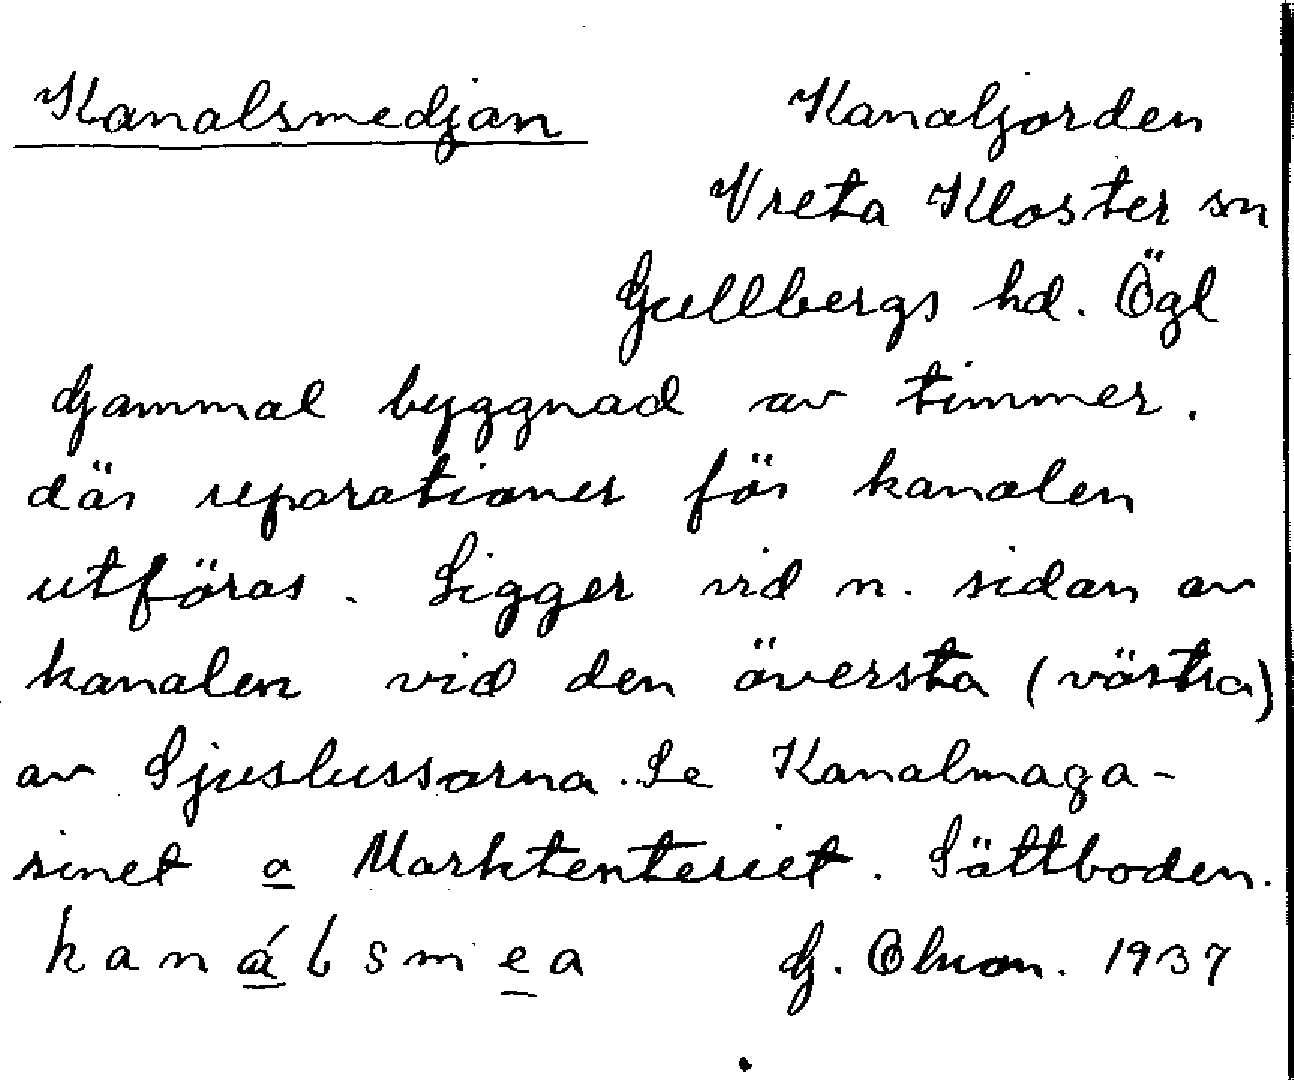 Kanalsmedjan Kanaljorden
Vreta Kloster sn
Gullbergs hd. Ögl
Gammal byggnad av timmer.
där reparationer för kanalen
utföras. Ligger vid n. sidan av
kanalen vid den översta (västra)
av Sjuslussarna. Se Kanalmaga-
sinet o Marktenteriet. Sättboden.
G. Olson. 1937